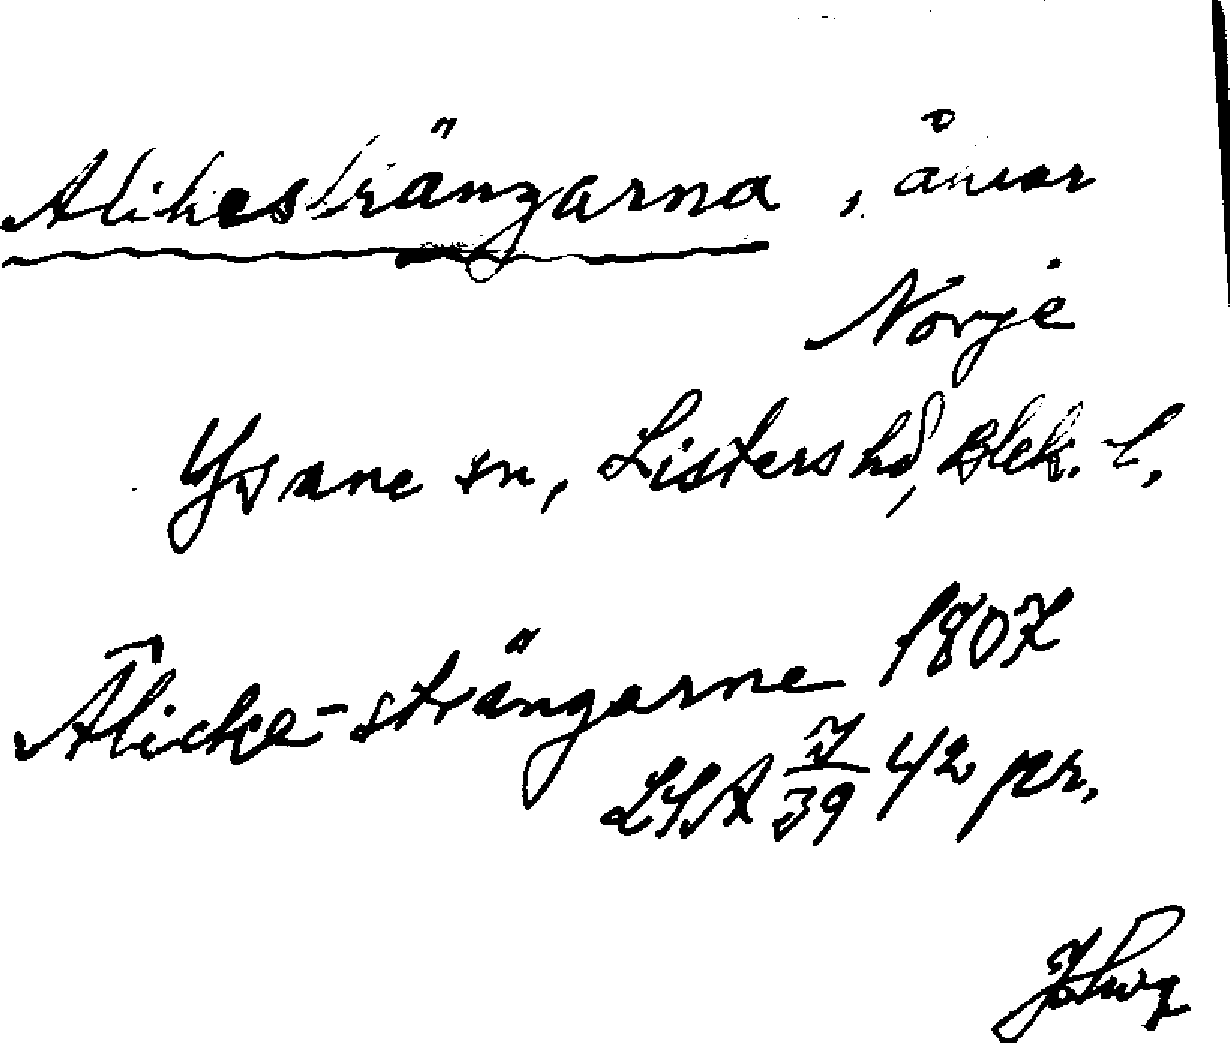 Alikesträngarna, åkrar
Norje
Ysane sn, Listers hd, Blek. l.
Ålicke-strängarne 1807
LSA I/39 42 pr.